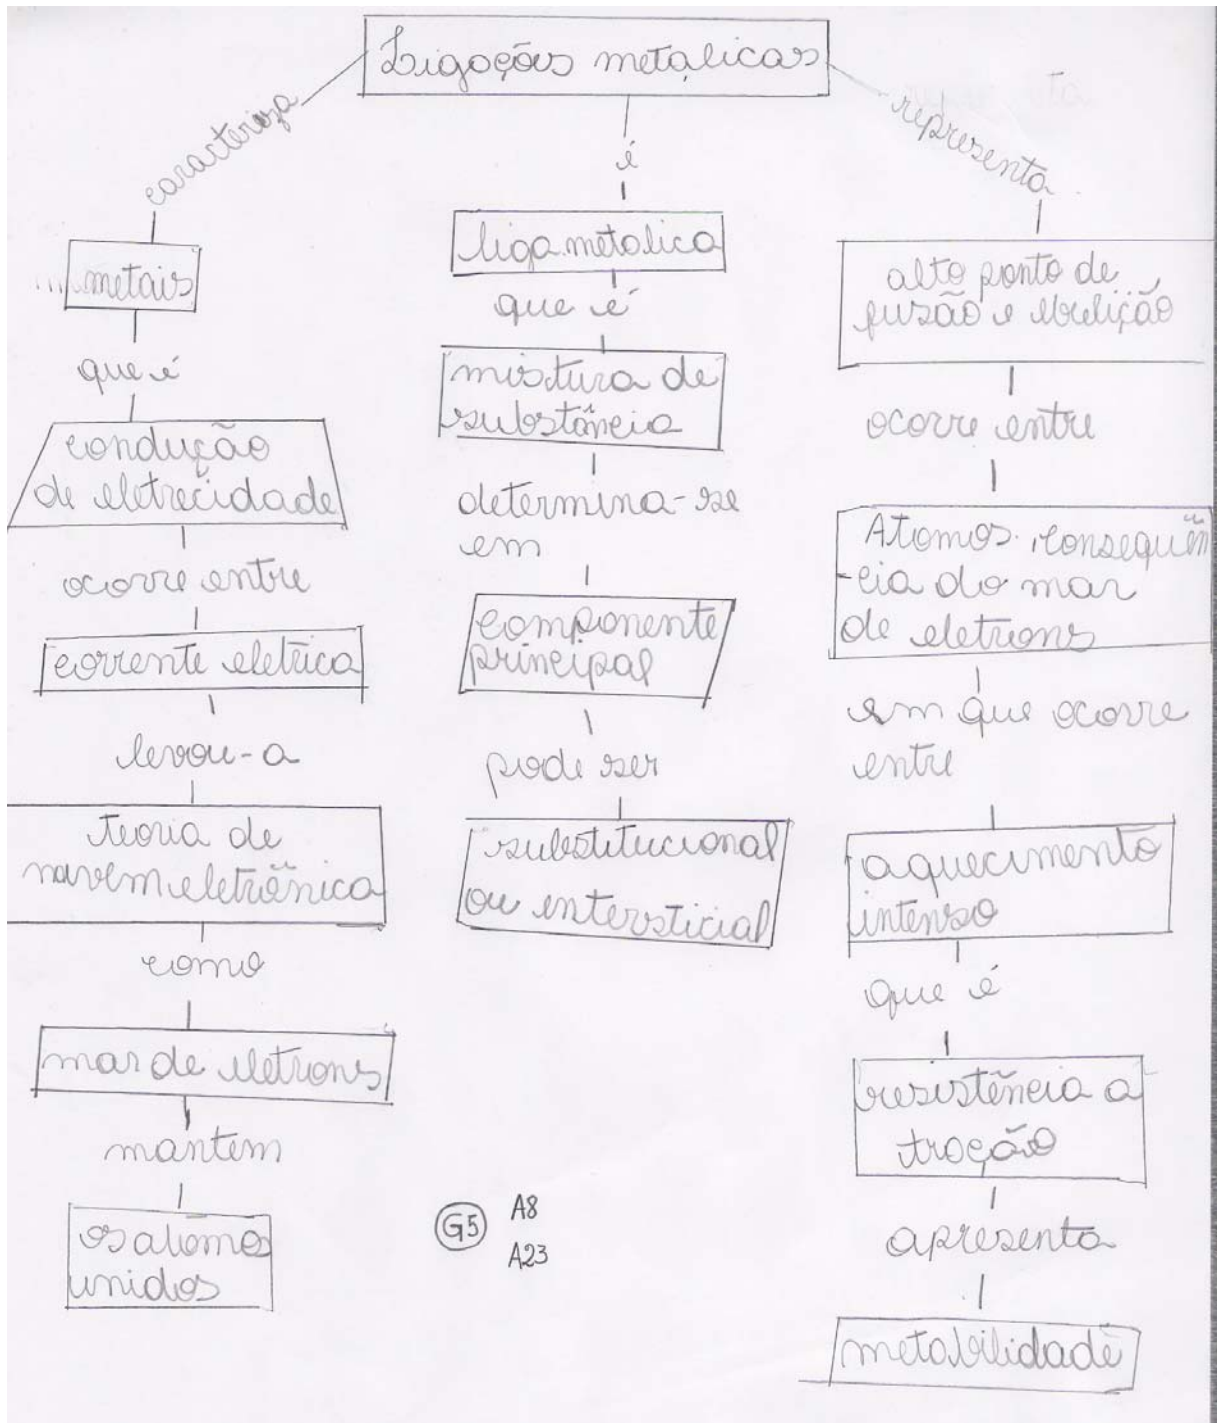 Ligações metalicas
caracteriza
metais
que é
condução
de eletrecidade
ocorre entre
corrente eletrica
levou-a
teoria de
nuvem eletrônica
como
mar de eletrons
mantem
os atomos
unidos
é
liga metalica
que é
mistura de
substância
determina-se
em
componente
principal
pode ser
substitucional
ou intersticial
representa
alto ponto de
fusão e ebulição
ocorre entre
Atomos, consequên
-cia do mar
de eletrons
em que ocorre
entre
aquecimento
intenso
que é
resistência a
tração
apresenta
metabilidade
G5 A8
A23